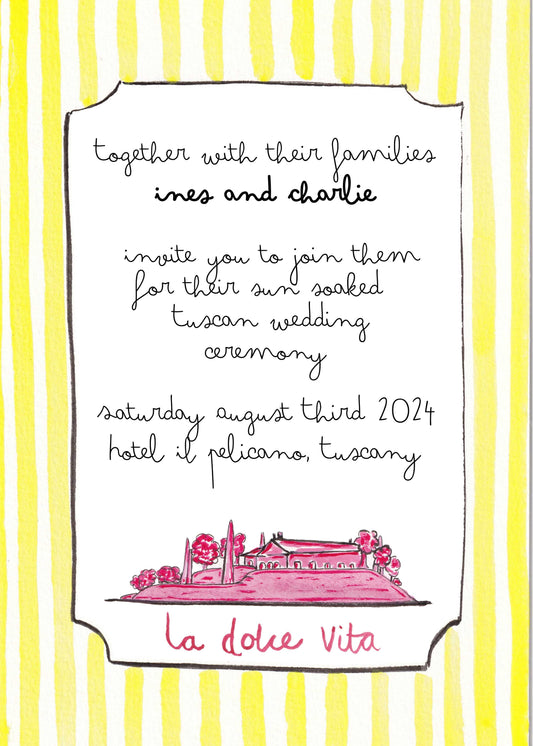 together with their families
ines and charlie
invite you to join them
for their sun soaked
tuscan wedding
ceremony
saturday august third 2024
hotel il pelicano, tuscany
la dolce vita